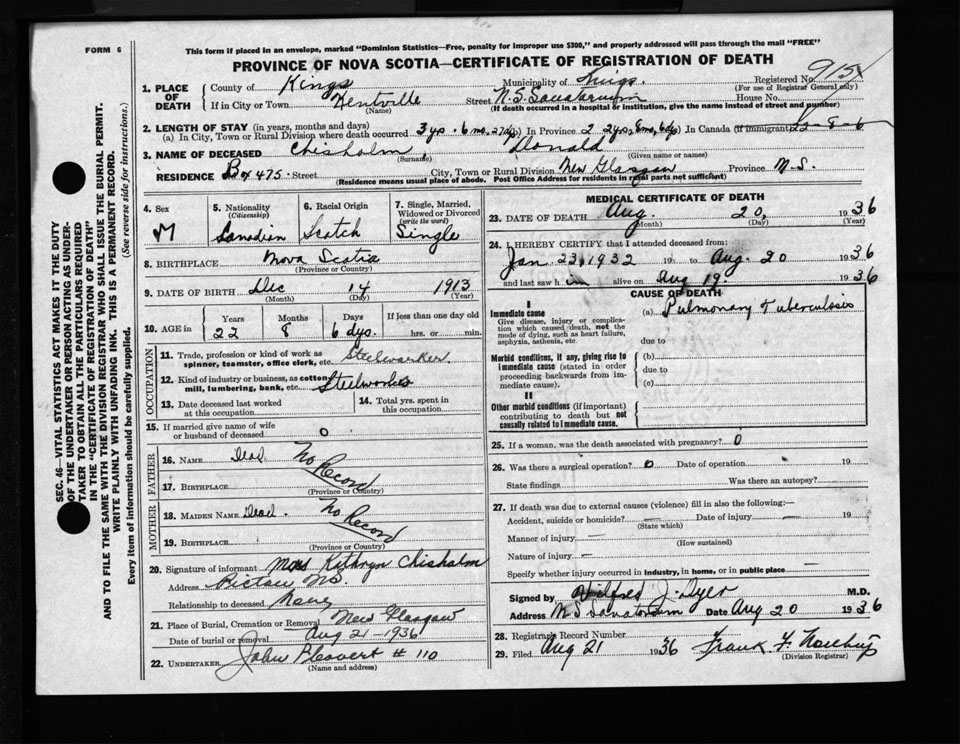 FORM 6
This form if placed in an envelope, marked "Dominion Statistics—Free, penalty for improper use $300," and properly addressed will pass through the mail "FREE"
PROVINCE OF NOVA SCOTIA—CERTIFICATE OF REGISTRATION OF DEATH
Registered No. 915
(For use of Registrar General only)
1. PLACE OF DEATH
County of Kings Municipality of Kings
If in City or Town Kentville Street N.S. Sanatorium House No.
(Name) (If death occurred in a hospital or institution, give the name instead of street and number)
2. LENGTH OF STAY (in years, months and days)
(a) In City, Town or Rural Division where death occurred 3 yrs. 6 mo. 27 dys. In Province 22 yrs, 8 mo, 6 dys In Canada (if immigrant) 22-8-6
3. NAME OF DECEASED Chisholm Donald
(Surname) (Given name or names)
RESIDENCE Box 475 Street City, Town or Rural Division New Glasgow Province N.S.
(Residence means usual place of abode. Post Office Address for residents in rural parts not sufficient)
4. Sex M
5. Nationality (Citizenship) Canadian
6. Racial Origin Scotch
7. Single, Married, Widowed or Divorced (write the word) Single
8. BIRTHPLACE Nova Scotia
(Province or Country)
9. DATE OF BIRTH Dec 14 1913
(Month) (Day) (Year)
10. AGE in Years 22 Months 8 Days 6 dys. If less than one day old hrs. or min.
OCCUPATION
11. Trade, profession or kind of work as spinner, teamster, office clerk, etc. Steelworker
12. Kind of industry or business, as cotton mill, lumbering, bank, etc. Steelworks
13. Date deceased last worked at this occupation
14. Total yrs. spent in this occupation
15. If married give name of wife or husband of deceased 0
FATHER
16. NAME Dead No Record
17. BIRTHPLACE
(Province or Country)
MOTHER
18. MAIDEN NAME Dead. No Record
19. BIRTHPLACE
(Province or Country)
20. Signature of informant Kathryn Chisholm
Address Pictou N.S.
Relationship to deceased
21. Place of Burial, Cremation or Removal New Glasgow
Date of burial or removal Aug 21-1936
22. UNDERTAKER John # 110
(Name and address)
MEDICAL CERTIFICATE OF DEATH
23. DATE OF DEATH Aug. 20, 1936
(Month) (Day) (Year)
24. I HEREBY CERTIFY that I attended deceased from:
Jan. 23, 1932 19 to Aug. 20 1936
and last saw h im alive on Aug 19. 1936
CAUSE OF DEATH
I
Immediate cause (a) Pulmonary Tuberculosis
Give disease, injury or complication which caused death, not the mode of dying, such as heart failure, asphyxia, asthenia, etc.
due to
Morbid conditions, if any, giving rise to immediate cause (stated in order proceeding backwards from immediate cause).
(b)
due to
(c)
II
Other morbid conditions (if important) contributing to death but not causally related to immediate cause.
25. If a woman, was the death associated with pregnancy? 0
26. Was there a surgical operation? 0 Date of operation 19
State findings Was there an autopsy?
27. If death was due to external causes (violence) fill in also the following:—
Accident, suicide or homicide? — Date of injury — 19
(State which)
Manner of injury —
(How sustained)
Nature of injury —
Specify whether injury occurred in industry, in home, or in public place —
Signed by Wilfred J. Dyer M.D.
Address N S Sanatorium Date Aug 20 1936
28. Registrar's Record Number
29. Filed Aug 21 1936 Frank F.
(Division Registrar)
SEC. 46—VITAL STATISTICS ACT MAKES IT THE DUTY
OF THE UNDERTAKER OR PERSON ACTING AS UNDER-
TAKER TO OBTAIN ALL THE PARTICULARS REQUIRED
IN THE "CERTIFICATE OF REGISTRATION OF DEATH"
AND TO FILE THE SAME WITH THE DIVISION REGISTRAR WHO SHALL ISSUE THE BURIAL PERMIT.
WRITE PLAINLY WITH UNFADING INK. THIS IS A PERMANENT RECORD.
Every item of information should be carefully supplied. (See reverse side for instructions.)